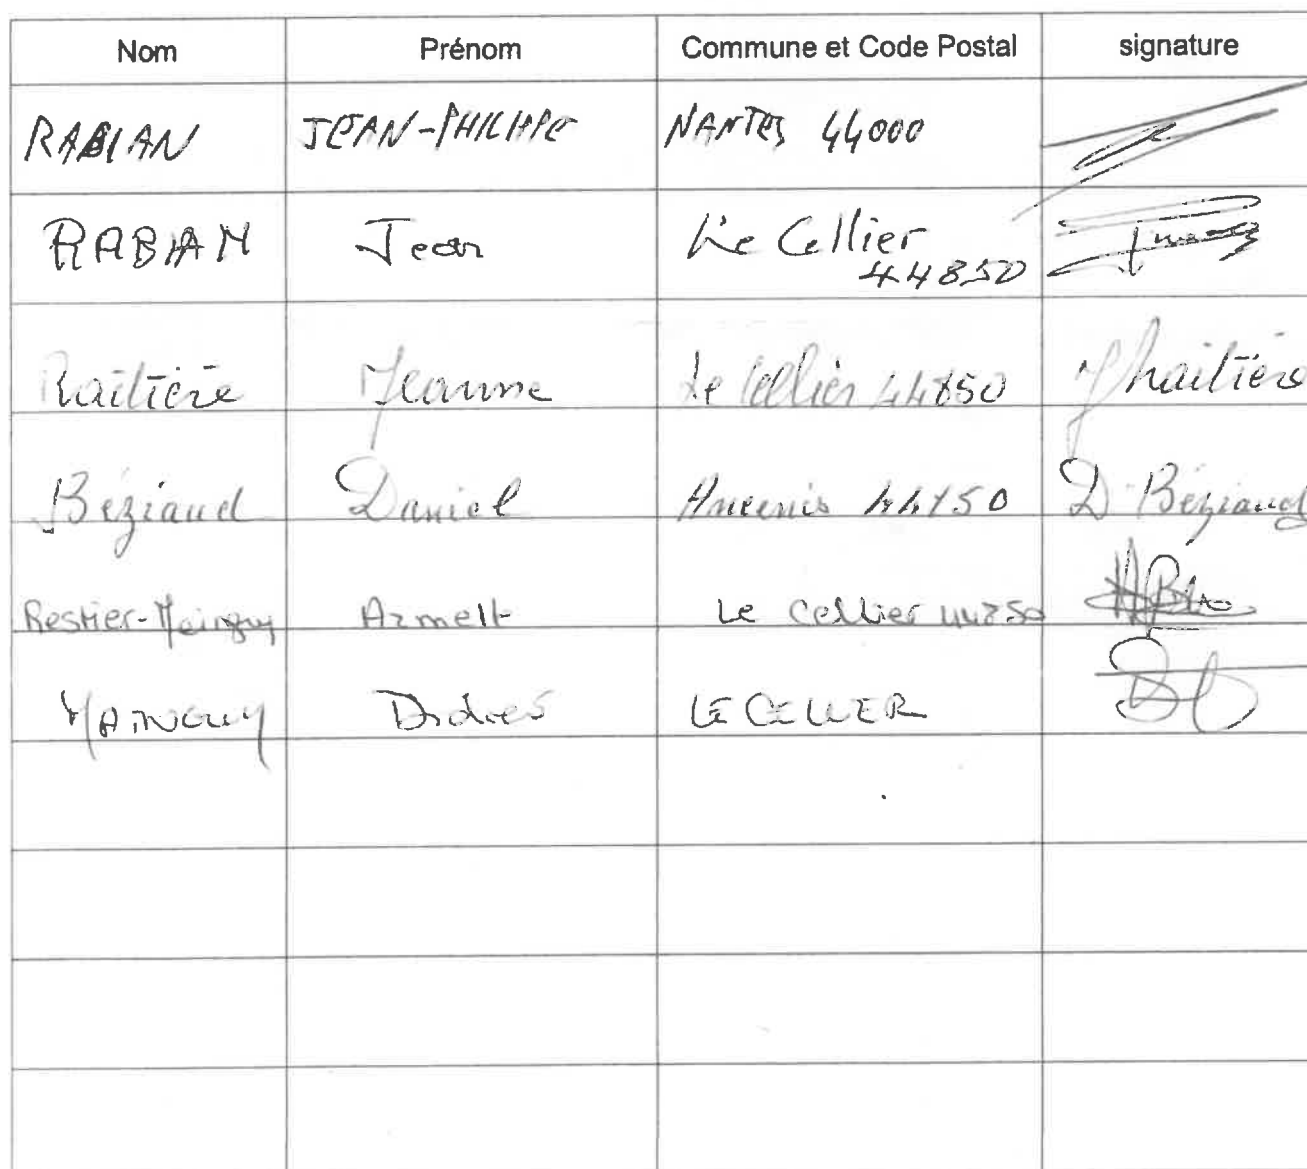 Nom Prénom Commune et Code Postal signature
RABIAN JEAN-PHILIPPE NANTES 44000
RABIAN Jean Le Cellier
44850
Raitière Jeanne Le Cellier 44850 J Raitière
Béziaud Daniel Ancenis 44150 D Béziaud
Restier-Mainguy Armelle Le Cellier 44850
MAINGUY Didier LE CELLIER